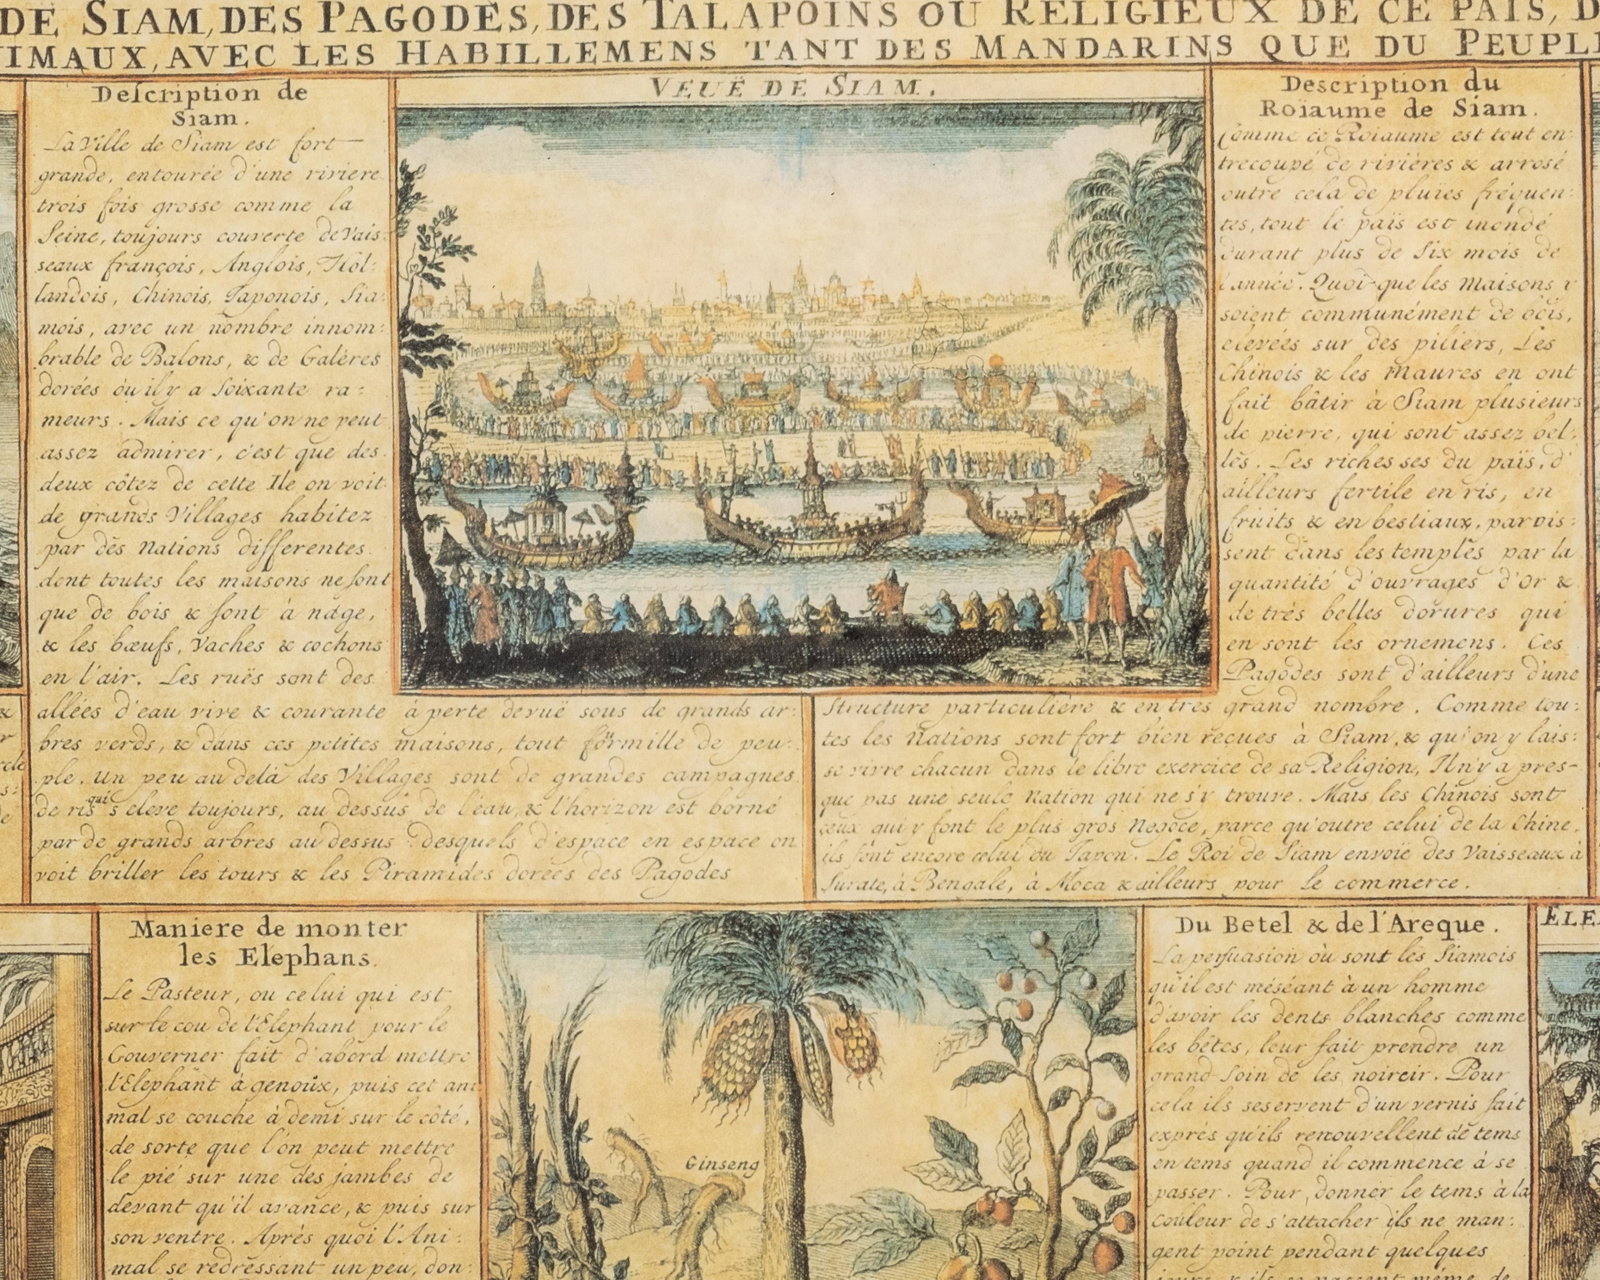 DE SIAM, DES PAGODES, DES TALAPOINS OU RELIGIEUX DE CE PAIS, D
IMAUX, AVEC LES HABILLEMENS TANT DES MANDARINS QUE DU PEUPLE
Description de
Siam.
La Ville de Siam est fort
grande, entourée d'une riviere
trois fois grosse comme la
Seine, toujours couverte de Vais-
seaux françois, Anglois, Hol-
landois, Chinois, Japonois, Sia-
mois, avec un nombre innom-
brable de Balons, & de Galères
dorées où il y a soixante ra-
meurs. Mais ce qu'on ne peut
assez admirer, c'est que des
deux côtez de cette Ile on voit
de grands Villages habitez
par des Nations differentes
dont toutes les maisons ne sont
que de bois & sont à nage,
& les bœufs, Vaches & cochons
en l'air. Les ruës sont des
allées d'eau vive & courante à perte de vuë sous de grands ar-
bres verds, & dans ces petites maisons, tout formille de peu-
ple. Un peu au delà des Villages sont de grandes campagnes
de ris qui s'eleve toujours, au dessus de l'eau, & l'horizon est borné
par de grands arbres au dessus desquels d'espace en espace on
voit briller les tours & les Piramides dorées des Pagodes
VEUË DE SIAM.
Description du
Roiaume de Siam.
Comme ce Roiaume est tout en-
trecoupé de rivières & arrosé
outre cela de pluies fréquen-
tes, tout le païs est inondé
durant plus de six mois de
l'année. Quoi-que les Maisons y
soient communément de bois,
élevées sur des piliers, Les
Chinois & les Maures en ont
fait bâtir à Siam plusieurs
de pierre, qui sont assez bel-
les. Les richesses du païs, d'
ailleurs fertile en ris, en
fruits & en bestiaux, parois-
sent dans les temples par la
quantité d'ouvrages d'Or &
de très belles dorures qui
en sont les ornemens. Ces
Pagodes sont d'ailleurs d'une
structure particulière & en tres grand nombre. Comme tou-
tes les Nations sont fort bien recues à Siam, & qu'on y lais-
se vivre chacun dans le libre exercice de sa Religion, Il n'y a pres-
que pas une seule Nation qui ne s'y trouve. Mais les Chinois sont
ceux qui y font le plus gros Negoce, parce qu'outre celui de la Chine,
ils font encore celui du Japon. Le Roi de Siam envoie des Vaisseaux à
Surate, à Bengale, à Moca & ailleurs pour le commerce.
Maniere de monter
les Elephans.
Le Pasteur, ou celui qui est
sur le cou de l'Elephant pour le
Gouverner fait d'abord mettre
l'Elephant à genoux, puis cet ani
mal se couche à demi sur le côté,
de sorte que l'on peut mettre
le pié sur une des jambes de
devant qu'il avance, & puis sur
son ventre. Après quoi l'Ani-
mal se redressant un peu, don-
Ginseng
Du Betel & de l'Areque.
La persuasion où sont les Siamois
qu'il est méséant à un homme
d'avoir les dents blanches comme
les bêtes, leur fait prendre un
grand soin de les noircir. Pour
cela ils se servent d'un vernis fait
exprés qu'ils renouvellent de tems
en tems quand il commence à se
passer. Pour donner le tems à la
couleur de s'attacher ils ne man-
gent point pendant quelques
ELE